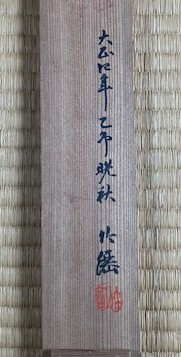 大正四年乙卯晩秋 竹